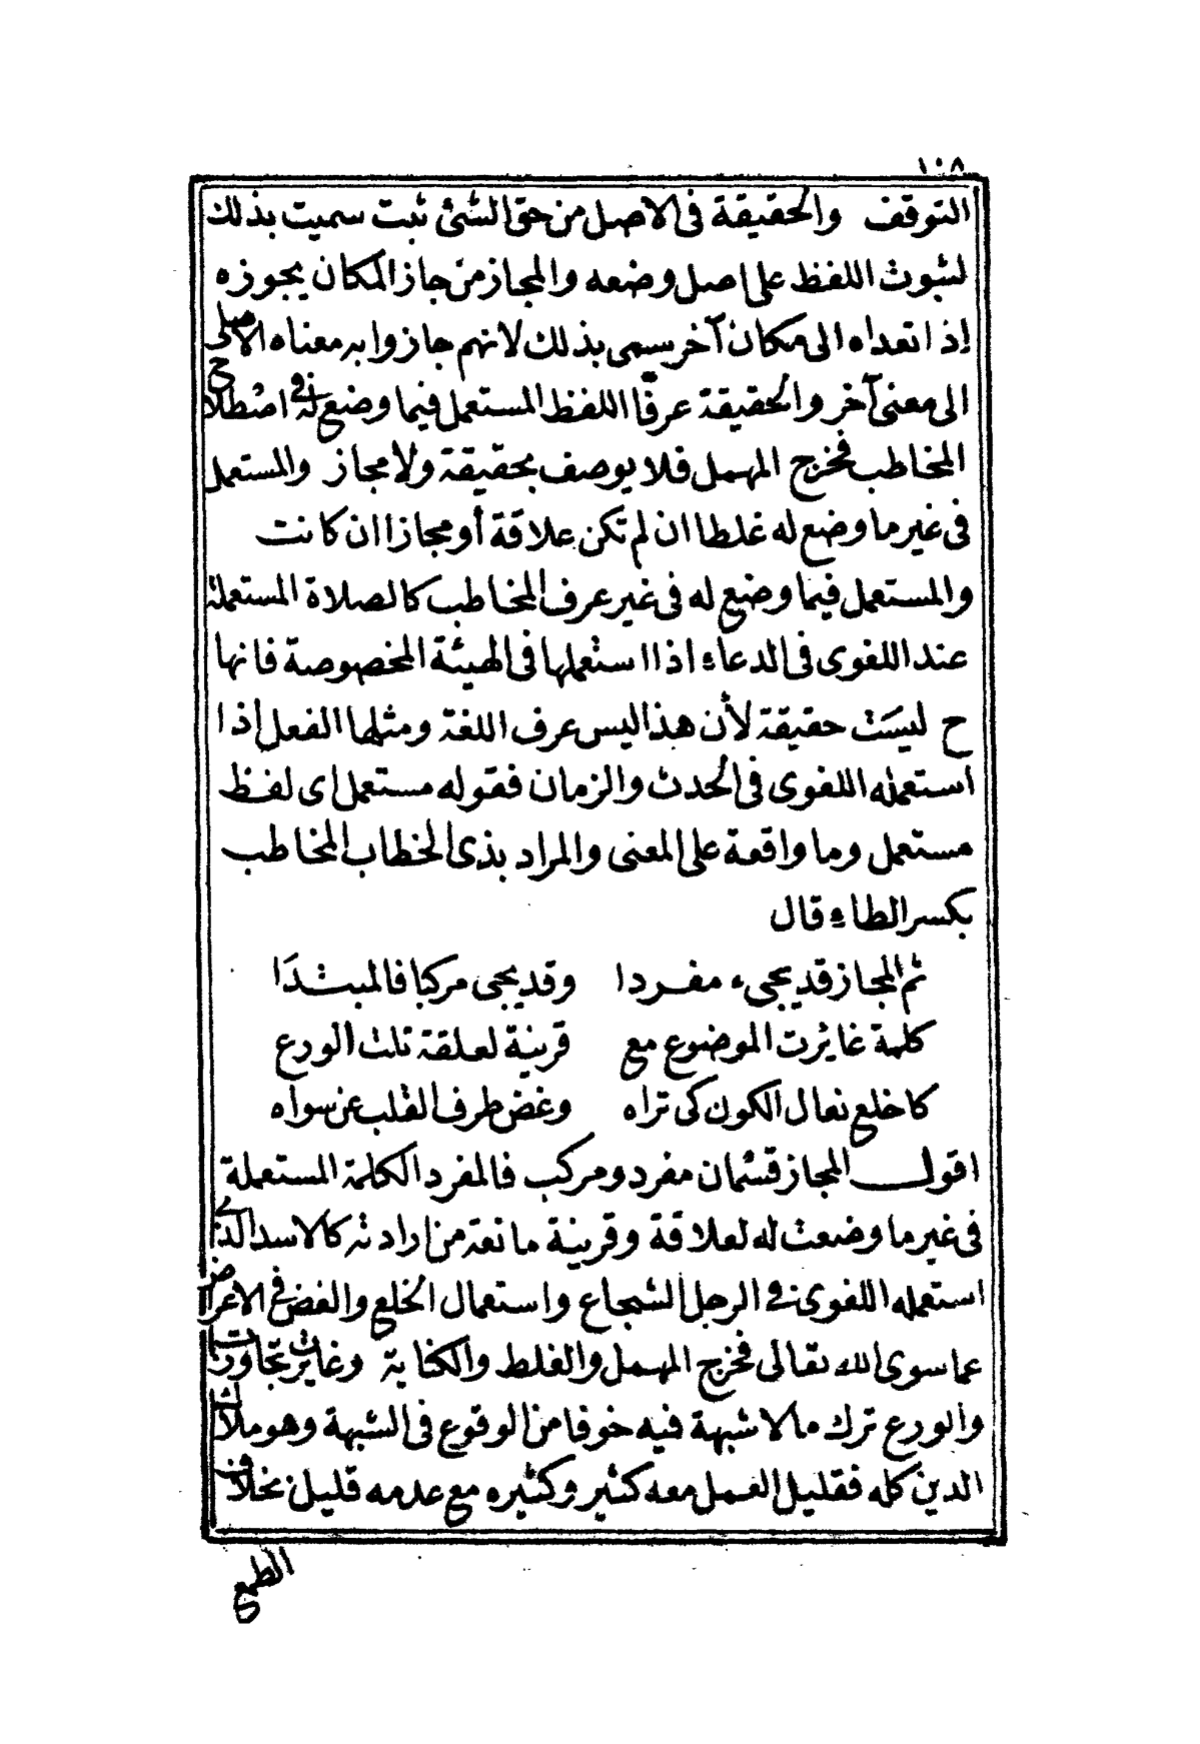 ١٠٨
التوقف والحقيقة فى الاصل من حق الشئ ثبت سميت بذلك
لثبوت اللفظ على اصل وضعه والمجاز من جاز المكان يجوزه
إذا تعداه الى مكان آخر سمى بذلك لانهم جازوا به معناه الاصلى
الى معنى آخر والحقيقة عرفا اللفظ المستعمل فيما وضع له فى اصطلاح
المخاطب فخرج المهمل فلا يوصف بحقيقة ولا مجاز والمستعمل
فى غير ما وضع له غلطا ان لم تكن علاقة أو مجازا ان كانت
والمستعمل فيما وضع له فى غير عرف المخاطب كالصلاة المستعملة
عند اللغوى فى الدعاء اذا استعملها فى الهيئة المخصوصة فانها
ح ليست حقيقة لأن هذا ليس عرف اللغة ومثلها الفعل اذا
استعمله اللغوى فى الحدث والزمان فقوله مستعمل اى لفظ
مستعمل وما واقعة على المعنى والمراد بذى الخطاب المخاطب
بكسر الطاء قال
ثم المجاز قد يجىء مفردا وقد يجى مركبا فالمبتدَا
كلمة غايرت الموضوع مع قرينة لعلقة نلت الورع
كاخلع نعال الكون كى تراه وغض طرف القلب عن سواه
اقول المجاز قسمان مفرد ومركب فالمفرد الكلمة المستعملة
فى غير ما وضعت له لعلاقة وقرينة مانعة من ارادته كالاسد الذى
استعمله اللغوى فى الرجل الشجاع واستعمال الخلع والغض فى الاعراض
عما سوى الله تعالى فخرج المهمل والغلط والكناية وغايرت تجاوزت
والورع ترك مالا شبهة فيه خوفا من الوقوع فى الشبهة وهو ملاك
الدين كله فقليل العمل معه كثير وكثيره مع عدمه قليل بخلاف
الطمع